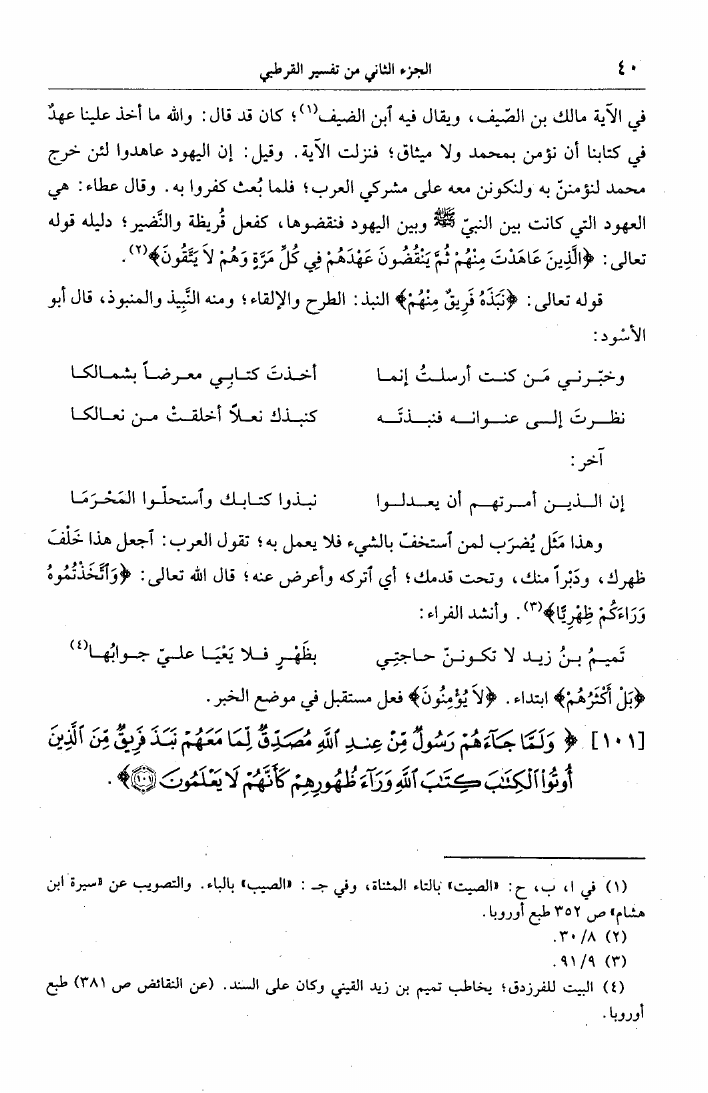 ٤٠ الجزء الثاني من تفسير القرطبي
في الآية مالك بن الصّيف، ويقال فيه ٱبن الضيف(١)؛ كان قد قال: والله ما أخذ علينا عهدٌ
في كتابنا أن نؤمن بمحمد ولا ميثاق؛ فنزلت الآية. وقيل: إن اليهود عاهدوا لئن خرج
محمد لنؤمننّ به ولنكونن معه على مشركي العرب؛ فلما بُعث كفروا به. وقال عطاء: هي
العهود التي كانت بين النبيّ ﷺ وبين اليهود فنقضوها، كفعل قُريظة والنَّضير؛ دليله قوله
تعالى: ﴿الَّذِينَ عَاهَدْتَ مِنْهُمْ ثُمَّ يَنْقُضُونَ عَهْدَهُمْ فِي كُلِّ مَرَّةٍ وَهُمْ لاَ يَتَّقُونَ﴾(٢).
قوله تعالى: ﴿نَبَذَهُ فَرِيقٌ مِنْهُمْ﴾ النبذ: الطرح والإلقاء؛ ومنه النَّبِيذ والمنبوذ، قال أبو
الأسْود:
وخبّرني مَن كنت أرسلتُ إنما أخذتَ كتابي معرضاً بشمالكا
نظرتَ إلى عنوانه فنبذتَه كنبذك نعلاً أخلقتْ من نعالكا
آخر:
إن الذين أمرتهم أن يعدلوا نبذوا كتابك وٱستحلّوا المَحْرَمَا
وهذا مَثَل يُضرَب لمن ٱستخفّ بالشيء فلا يعمل به؛ تقول العرب: ٱجعل هذا خَلْفَ
ظهرك، ودَبْراً منك، وتحت قدمك؛ أي ٱتركه وأعرض عنه؛ قال الله تعالى: ﴿وَٱتَّخَذْتُمُوهُ
وَرَاءَكُمْ ظِهْرِيًّا﴾(٣). وأنشد الفراء:
تَميمُ بنُ زيد لا تكوننّ حاجتي بظَهْرٍ فلا يَعْيَا عليّ جوابُها(٤)
﴿بَلْ أَكْثَرُهُمْ﴾ ابتداء. ﴿لاَ يُؤْمِنُونَ﴾ فعل مستقبل في موضع الخبر.
[١٠١] ﴿وَلَمَّا جَآءَهُمْ رَسُولٌ مِّنْ عِندِ ٱللَّهِ مُصَدِّقٌ لِّمَا مَعَهُمْ نَبَذَ فَرِيقٌ مِّنَ ٱلَّذِينَ
أُوتُوا ٱلْكِتَٰبَ كِتَٰبَ ٱللَّهِ وَرَآءَ ظُهُورِهِمْ كَأَنَّهُمْ لَا يَعْلَمُونَ ١٠١﴾.
(١) في ا، ب، ح: «الصيت» بالتاء المثناة، وفي جـ: «الصيب» بالباء. والتصويب عن «سيرة ابن
هشام» ص ٣٥٢ طبع أوروبا.
(٢) ٣٠/٨.
(٣) ٩١/٩.
(٤) البيت للفرزدق؛ يخاطب تميم بن زيد القيني وكان على السند. (عن النقائض ص ٣٨١) طبع
أوروبا.